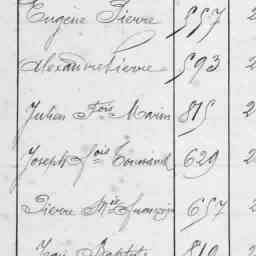 Eugène Pierre 557 2
Alexandre Pierre 593 2
Julien Fois Marin 815 2
Joseph fois 629 2
Pierre Mie françois 657 2
Jean Baptiste 810 2